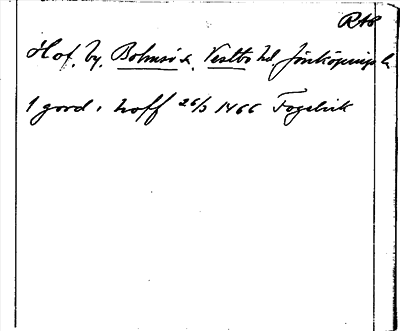 RAP
Hof, by, Bolmsö s. Vestbo hd, Jönköpings l.
1 gård i hoff 26/3 1466 Fogelvik